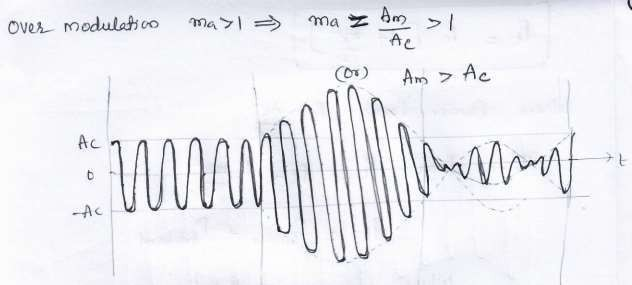 Over modulation ma>1 ⇒ ma = Am/Ac > 1
(or) Am > Ac
Ac
0
-Ac
t